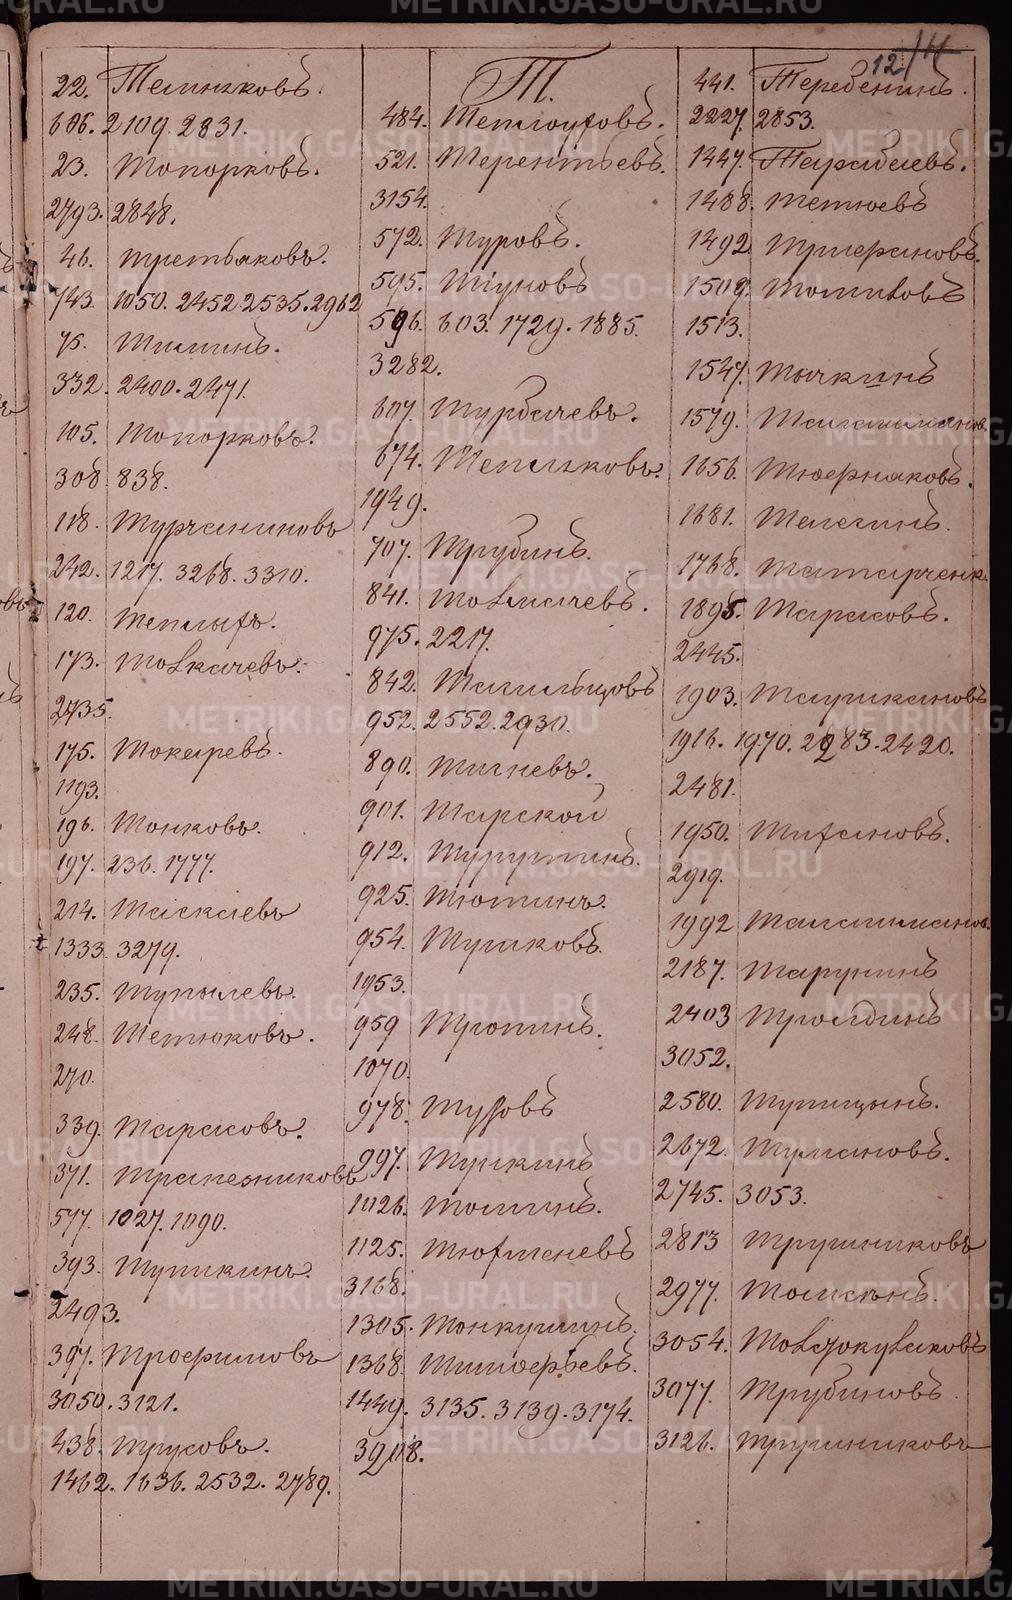 12/11
22. Телѣгковъ.
606. 2109. 2831.
23. Топорковъ.
2793. 2848.
46. Третьяковъ.
743. 1050. 2452. 2535. 2962
75. Тилинъ.
332. 2400. 2471.
105. Топорковъ.
308. 838.
118. Турчаниновъ
242. 1217. 3268. 3310.
120. Теплыхъ.
173. Толкачевъ.
2735.
175. Токаревъ.
1193.
196. Тонковъ.
197. 236. 1777.
214. Таскаевъ
1333. 3279.
235. Тупылевъ.
248. Тетюковъ.
270.
339. Тарасовъ.
371. Трапезниковъ
577. 1027. 1090.
393. Тупикинъ.
2493.
397. Трофимовъ
3050. 3121.
438. Трусовъ.
1462. 1636. 2532. 2789.
Т.
484. Теплоуховъ.
521. Терентьевъ.
3154.
572. Туровъ.
595. Тіуновъ
596. 603. 1729. 1885.
3282.
607. Турбачевъ.
674. Тепляковъ.
1949.
707. Трубинъ.
841. Толмачевъ.
975. 2217.
842. Тагильцовъ
952. 2552. 2930.
890. Тагневъ.
901. Тарской
912.
925. Тютинъ.
954. Тушковъ.
1953.
959 Тропинъ.
1070.
978.
997. Тункинъ
1026. Томинъ.
1125. Тюфтеневъ
3168.
1305. Тонкушинъ.
1368. Тимофѣевъ.
1449. 3135. 3139. 3174.
3208.
441. Теребенинъ.
2227. 2853.
1447. Тарабаевъ.
1488. Тетюевъ
1492.
1509. Томиловъ
1513.
1547. Тычкинъ
1579.
1656. Тюферняковъ.
1681. Телегинъ.
1768. Татарченк.
1895. Тарасовъ.
2445.
1903. Тауикановъ
1916. 1970. 2283. 2420.
2481.
1950. Тихановъ.
2919.
1992
2187. Тарунинъ
2403 Троидинъ
3052.
2580. Тупицынъ.
2672. Тумановъ.
2745. 3053.
2813 Трушниковъ
2977.
3054. Толстокулаковъ
3077. Трубиновъ.
3126. Трушниковъ
METRIKI.GASO-URAL.RU